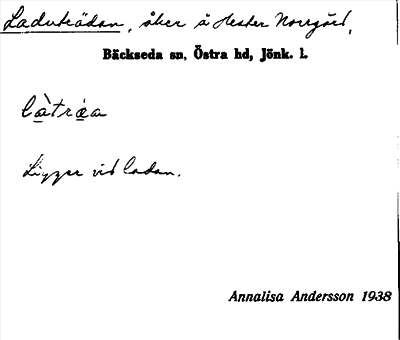 Laduträdan, åker å Hester Norrgård,
Bäckseda sn, Östra hd, Jönk. l.
làtráa
Ligger vid ladan.
Annalisa Andersson 1938